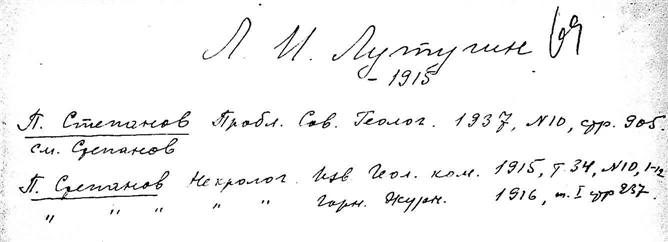 Л. И. Лутугин 69
– 1915
П. Степанов Пробл. Сов. Геолог. 1937, N10, стр. 905.
см. Степанов
П. Степанов Некролог. Изв Геол. ком. 1915, т. 34, N10, 1-12
" " " " " Горн. Журн. 1916, т. I стр 237.